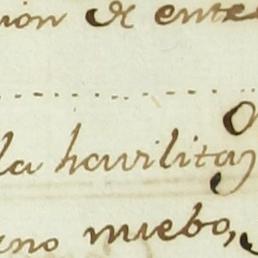 ion de entre
la havilitaz
uno nuebo,